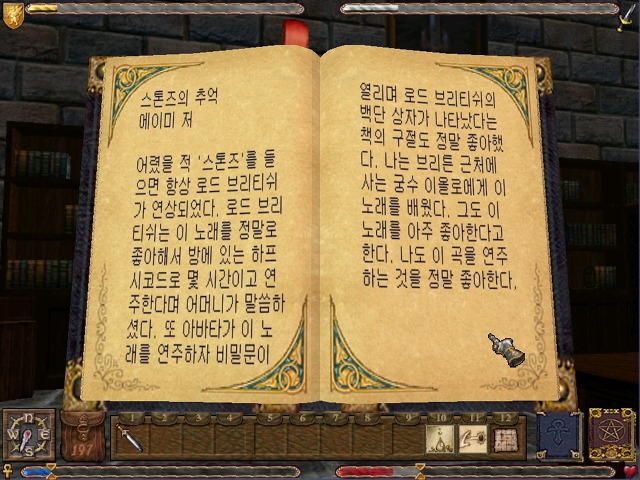 스톤즈의 추억
에이미 저
어렸을 적 '스톤즈'를 들
으면 항상 로드 브리티쉬
가 연상되었다. 로드 브리
티쉬는 이 노래를 정말로
좋아해서 방에 있는 하프
시코드로 몇 시간이고 연
주한다며 어머니가 말씀하
셨다. 또 아바타가 이 노
래를 연주하자 비밀문이
열리며 로드 브리티쉬의
백단 상자가 나타났다는
책의 구절도 정말 좋아했
다. 나는 브리튼 근처에
사는 궁수 이올로에게 이
노래를 배웠다. 그도 이
노래를 아주 좋아한다고
한다. 나도 이 곡을 연주
하는 것을 정말 좋아한다.
N
W E
S
197
1 2 3 4 5 6 7 8 9 10 11 12